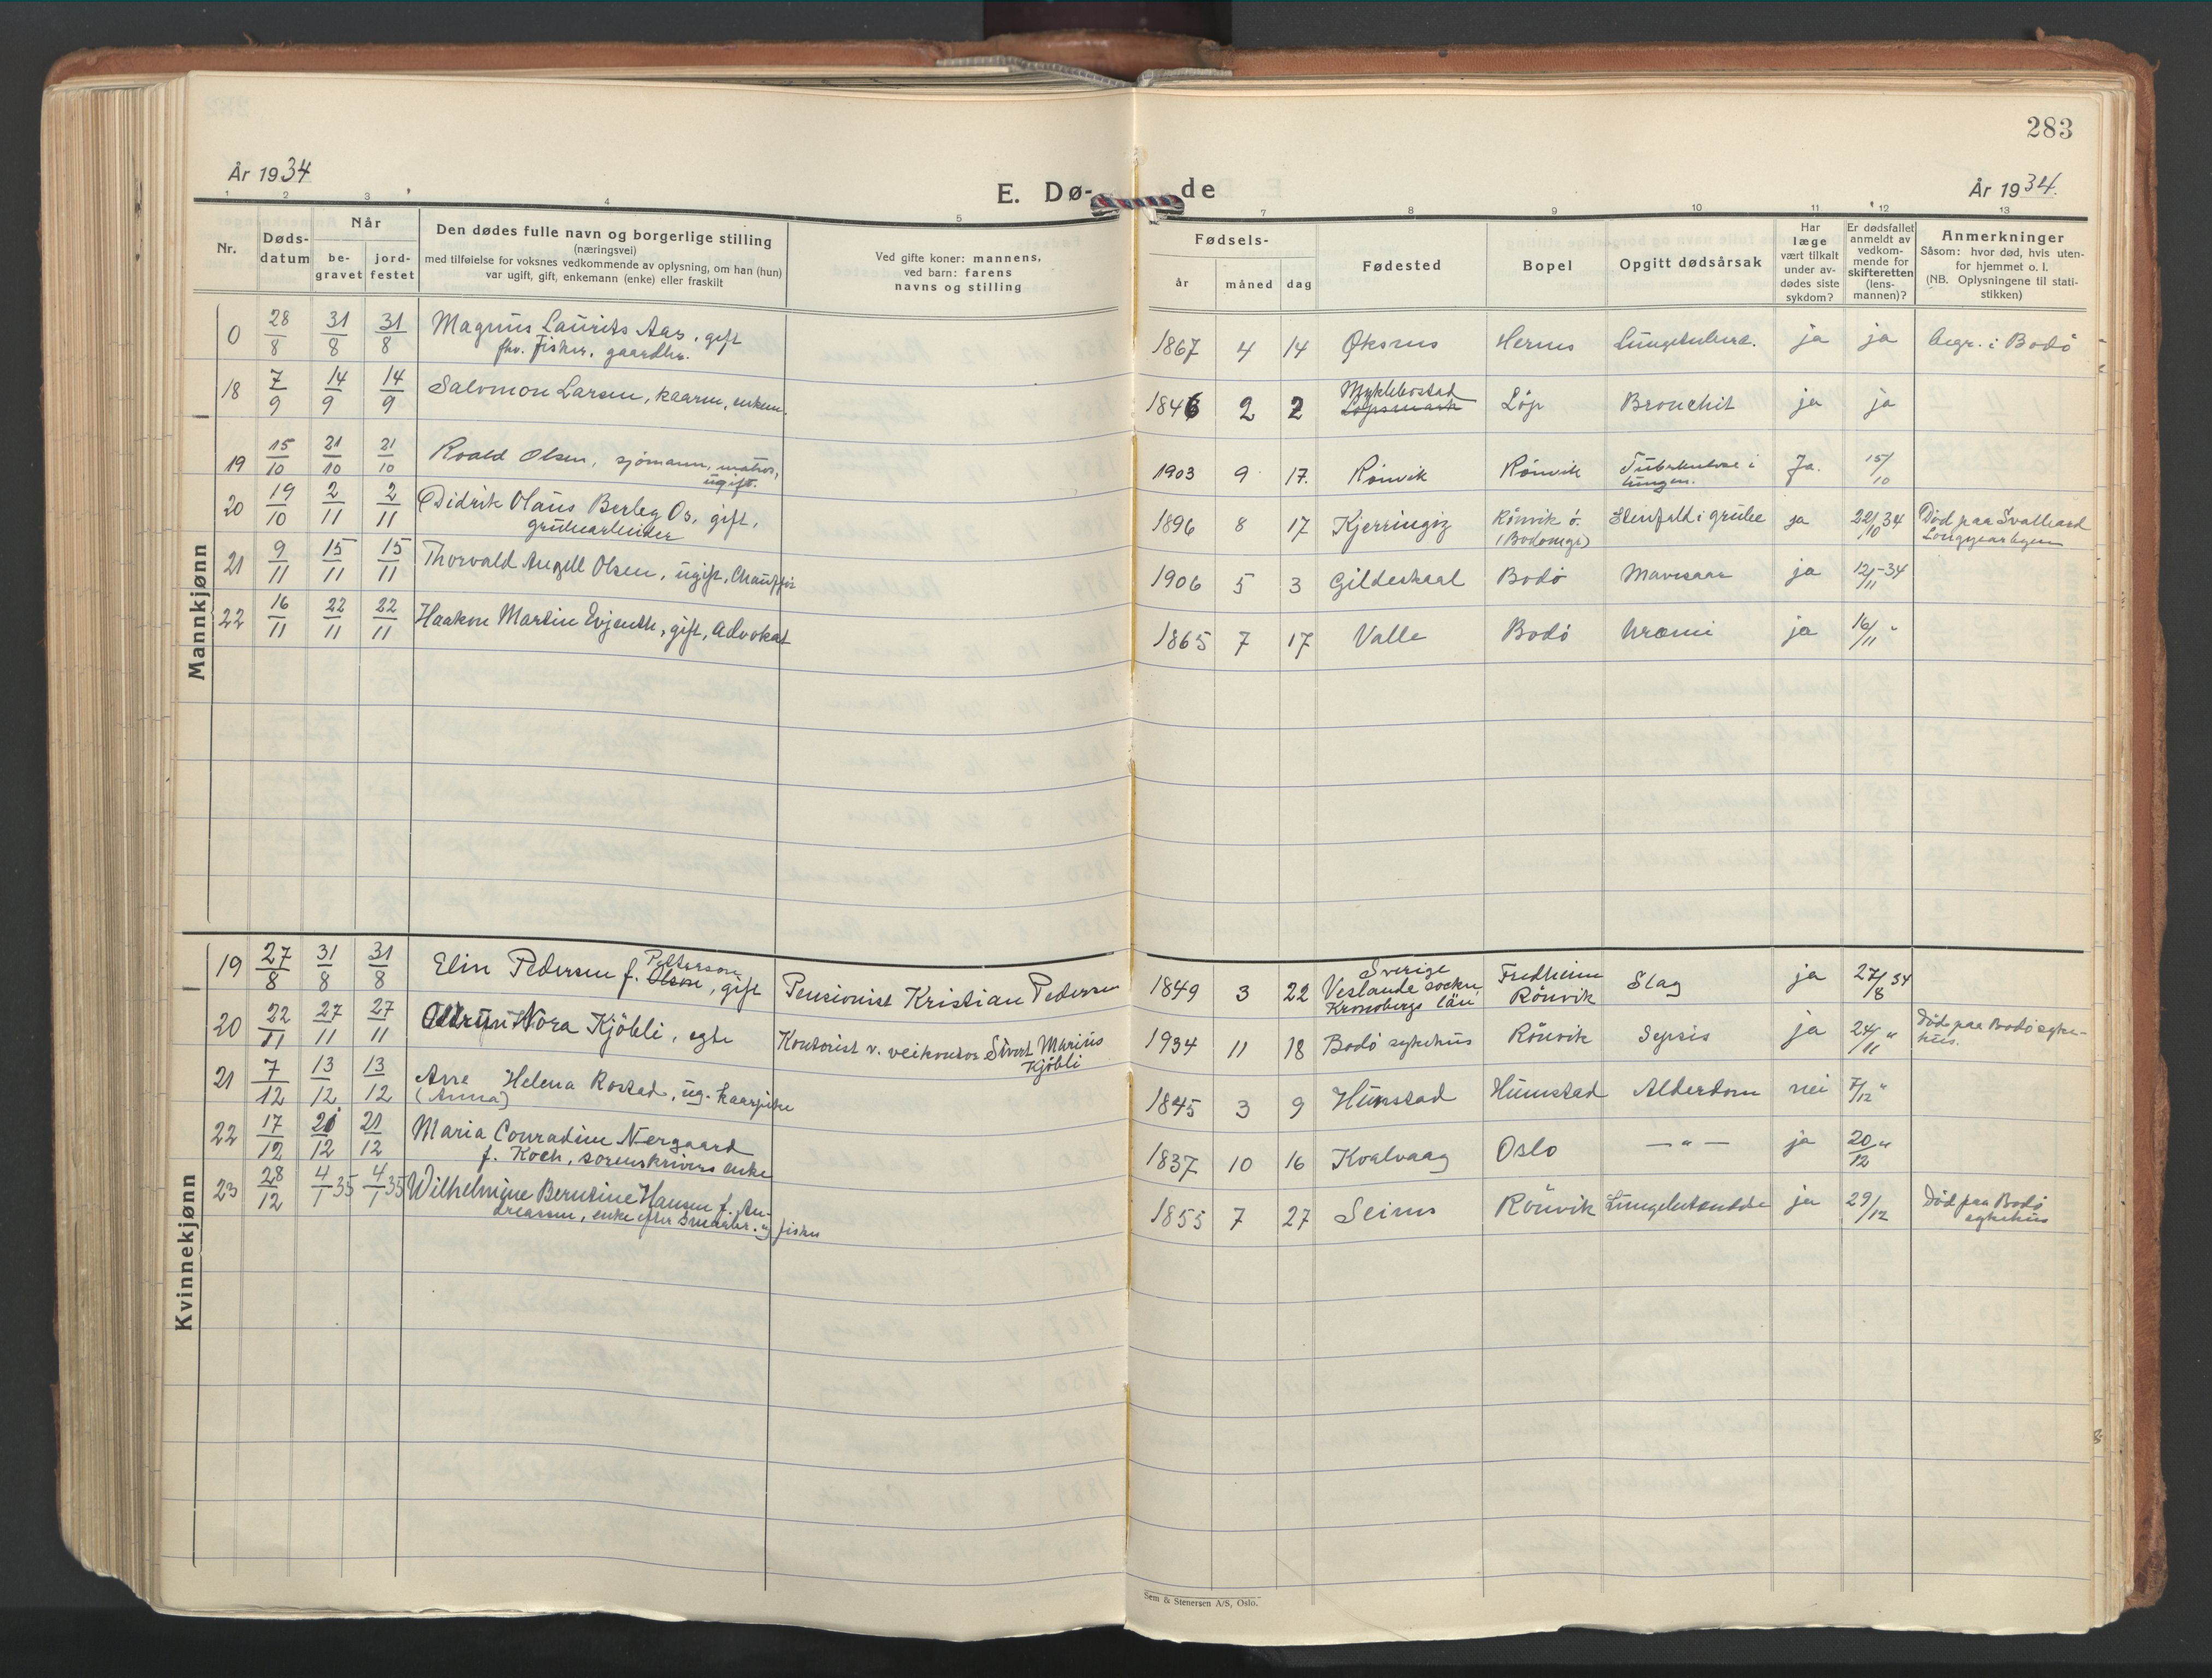 283
År 1934
E. Dø- de
År 1934.
1 2 3 4 5 7 8 9 10 11 12 13
Nr.
Døds-
datum
Når
be-
gravet
jord-
festet
Den dødes fulle navn og borgerlige stilling
(næringsvei)
med tilføielse for voksnes vedkommende av oplysning, om han (hun)
var ugift, gift, enkemann (enke) eller fraskilt
Ved gifte koner: mannens,
ved barn: farens
navns og stilling
Fødsels-
år måned dag
Fødested
Bopel
Opgitt dødsårsak
Har
læge
vært tilkalt
under av-
dødes siste
sykdom?
Er dødsfallet
anmeldt av
vedkom-
mende for
skifteretten
(lens-
mannen)?
Anmerkninger
Såsom: hvor død, hvis uten-
for hjemmet o. l.
(NB. Oplysningene til stati-
stikken)
Mannkjønn
0 28/8 31/8 31/8 Magnus Laurits Aas, gift 1867 4 14 Øksnes Hernes Lungetuberk. ja ja begr. i Bodö
fhv. Fisker, gaardbr.
18 7/9 14/9 14/9 Salomon Larsen, kaarm, enkem. 1846 2 2 Myklebostad Löp Bronchit ja ja
Löpsmark
19 15/10 21/10 21/10 Roald Olsen, sjömann, matros, 1903 9 17. Rönvik Rönvik Tuberkulose i Ja. 15/10
ugift. lungen.
20 19/10 2/11 2/11 Didrik Olaus Berleg Os, gift, 1896 8 17 Kjerringöy Rönvik ö. Stenfald i grube ja 22/10 34 Död paa Svalbard
grubearbeider (Bodomgr) Longyearbyen
21 9/11 15/11 15/11 Thorvald Angell Olsen, ugift, Chauffør 1906 5 3 Gildeskaal Bodö Mavesaar ja 12/11-34
22 16/11 22/11 22/11 Haakon Martin Evjenth, gift, Advokat 1865 7 17 Valle Bodö Uræmi ja 16/11 "
Kvinnekjønn
19 27/8 31/8 31/8 Elin Pedersen f. Petterson Olsson, gift Pensionist Kristian Pedersen 1849 3 22 Sverige Fredheim Slag ja 27/8 34
Veslanda socken Rönvik
Kronobergs län
20 22/11 27/11 27/11 Oddrun Nora Kjöbli, egte Kontorist v. veikontor Sivert Marius 1934 11 18 Bodö sykehus Rönvik Sepsis ja 24/11 " Död paa Bodö syke-
Kjöbli hus.
21 7/12 13/12 13/12 Ane Helena Rostad, ug. kaarpike 1845 3 9 Hunstad Hunstad Alderdom nei 7/12 "
(Anna)
22 17/12 21/12 21/12 Maria Conradine Nergaard 1837 10 16 Kvalvaag Oslo — " — ja 20/12 "
f. Koch, sorenskrivers enke
23 28/12 4/1 35 4/1 35 Wilhelmine Berntine Hansen f. An- 1855 7 27 Seines Rönvik Lungebetendelse ja 29/12 Död paa Bodö
dreassen, enke efter smaabr. og fisker sykehus
Sem & Stenersen A/S, Oslo.